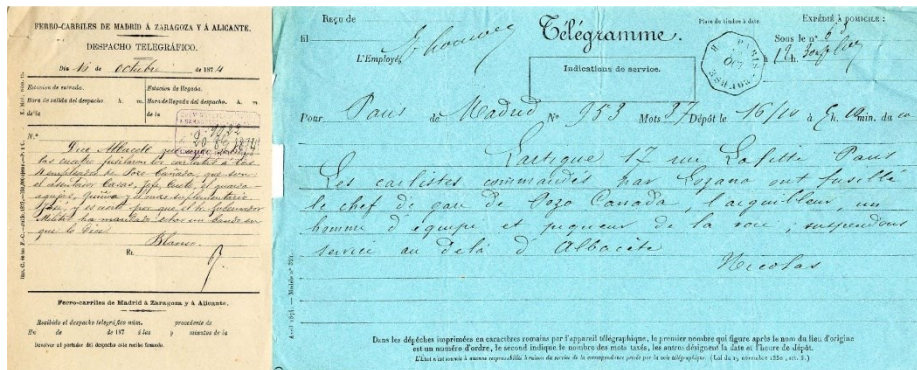 FERRO-CARRILES DE MADRID Á ZARAGOZA Y Á ALICANTE.
DESPACHO TELEGRÁFICO.
Dia 14 de octubre de 1874
Estacion de entrada.
Hora de salida del despacho á m.
de la
Estacion de llegada.
Hora de llegada del despacho. á m.
de la
N.º
Dice Albacete que
las cuatro fusilaron los carlistas á los
empleados de Pozo-Cañada, que son
el Casas, Jefe, el guarda-
agujas,
y
Militar ha mandado echar un bando en
que lo dice
Blanco
EL
Ferro-carriles de Madrid á Zaragoza y á Alicante.
Recibido el despacho telegráfico núm. procedente de
En de de 187 á las y minutos de la
Devolver al portador del despacho este recibo firmado.
Reçu de
fil
L'Employé,
Télégramme.
Indications de service.
Place du timbre à date.
PARIS
BOURSE
EXPÉDIÉ À DOMICILE :
Sous le nº
Pour Paris de Madrid Nº 953 Mots 37 Dépôt le 16/10 à 5h. 10 min. du
Lartigue 17 rue Lafitte Paris
Les carlistes commandés par Lozano ont fusillé
le chef de gare de Pozo Canada, l'aiguilleur un
homme d'équipe et piqueur de la voie, suspendons
service au delà d'Albacète
Nicolas
Dans les dépêches imprimées en caractères romains par l'appareil télégraphique, le premier nombre qui figure après le nom du lieu d'origine
est un numéro d'ordre, le second indique le nombre des mots taxés, les autres désignent la date et l'heure de dépôt.
L'État n'est soumis à aucune responsabilité à raison du service de la correspondance privée par la voie télégraphique. (Loi du 29 novembre 1850, art. 6.)